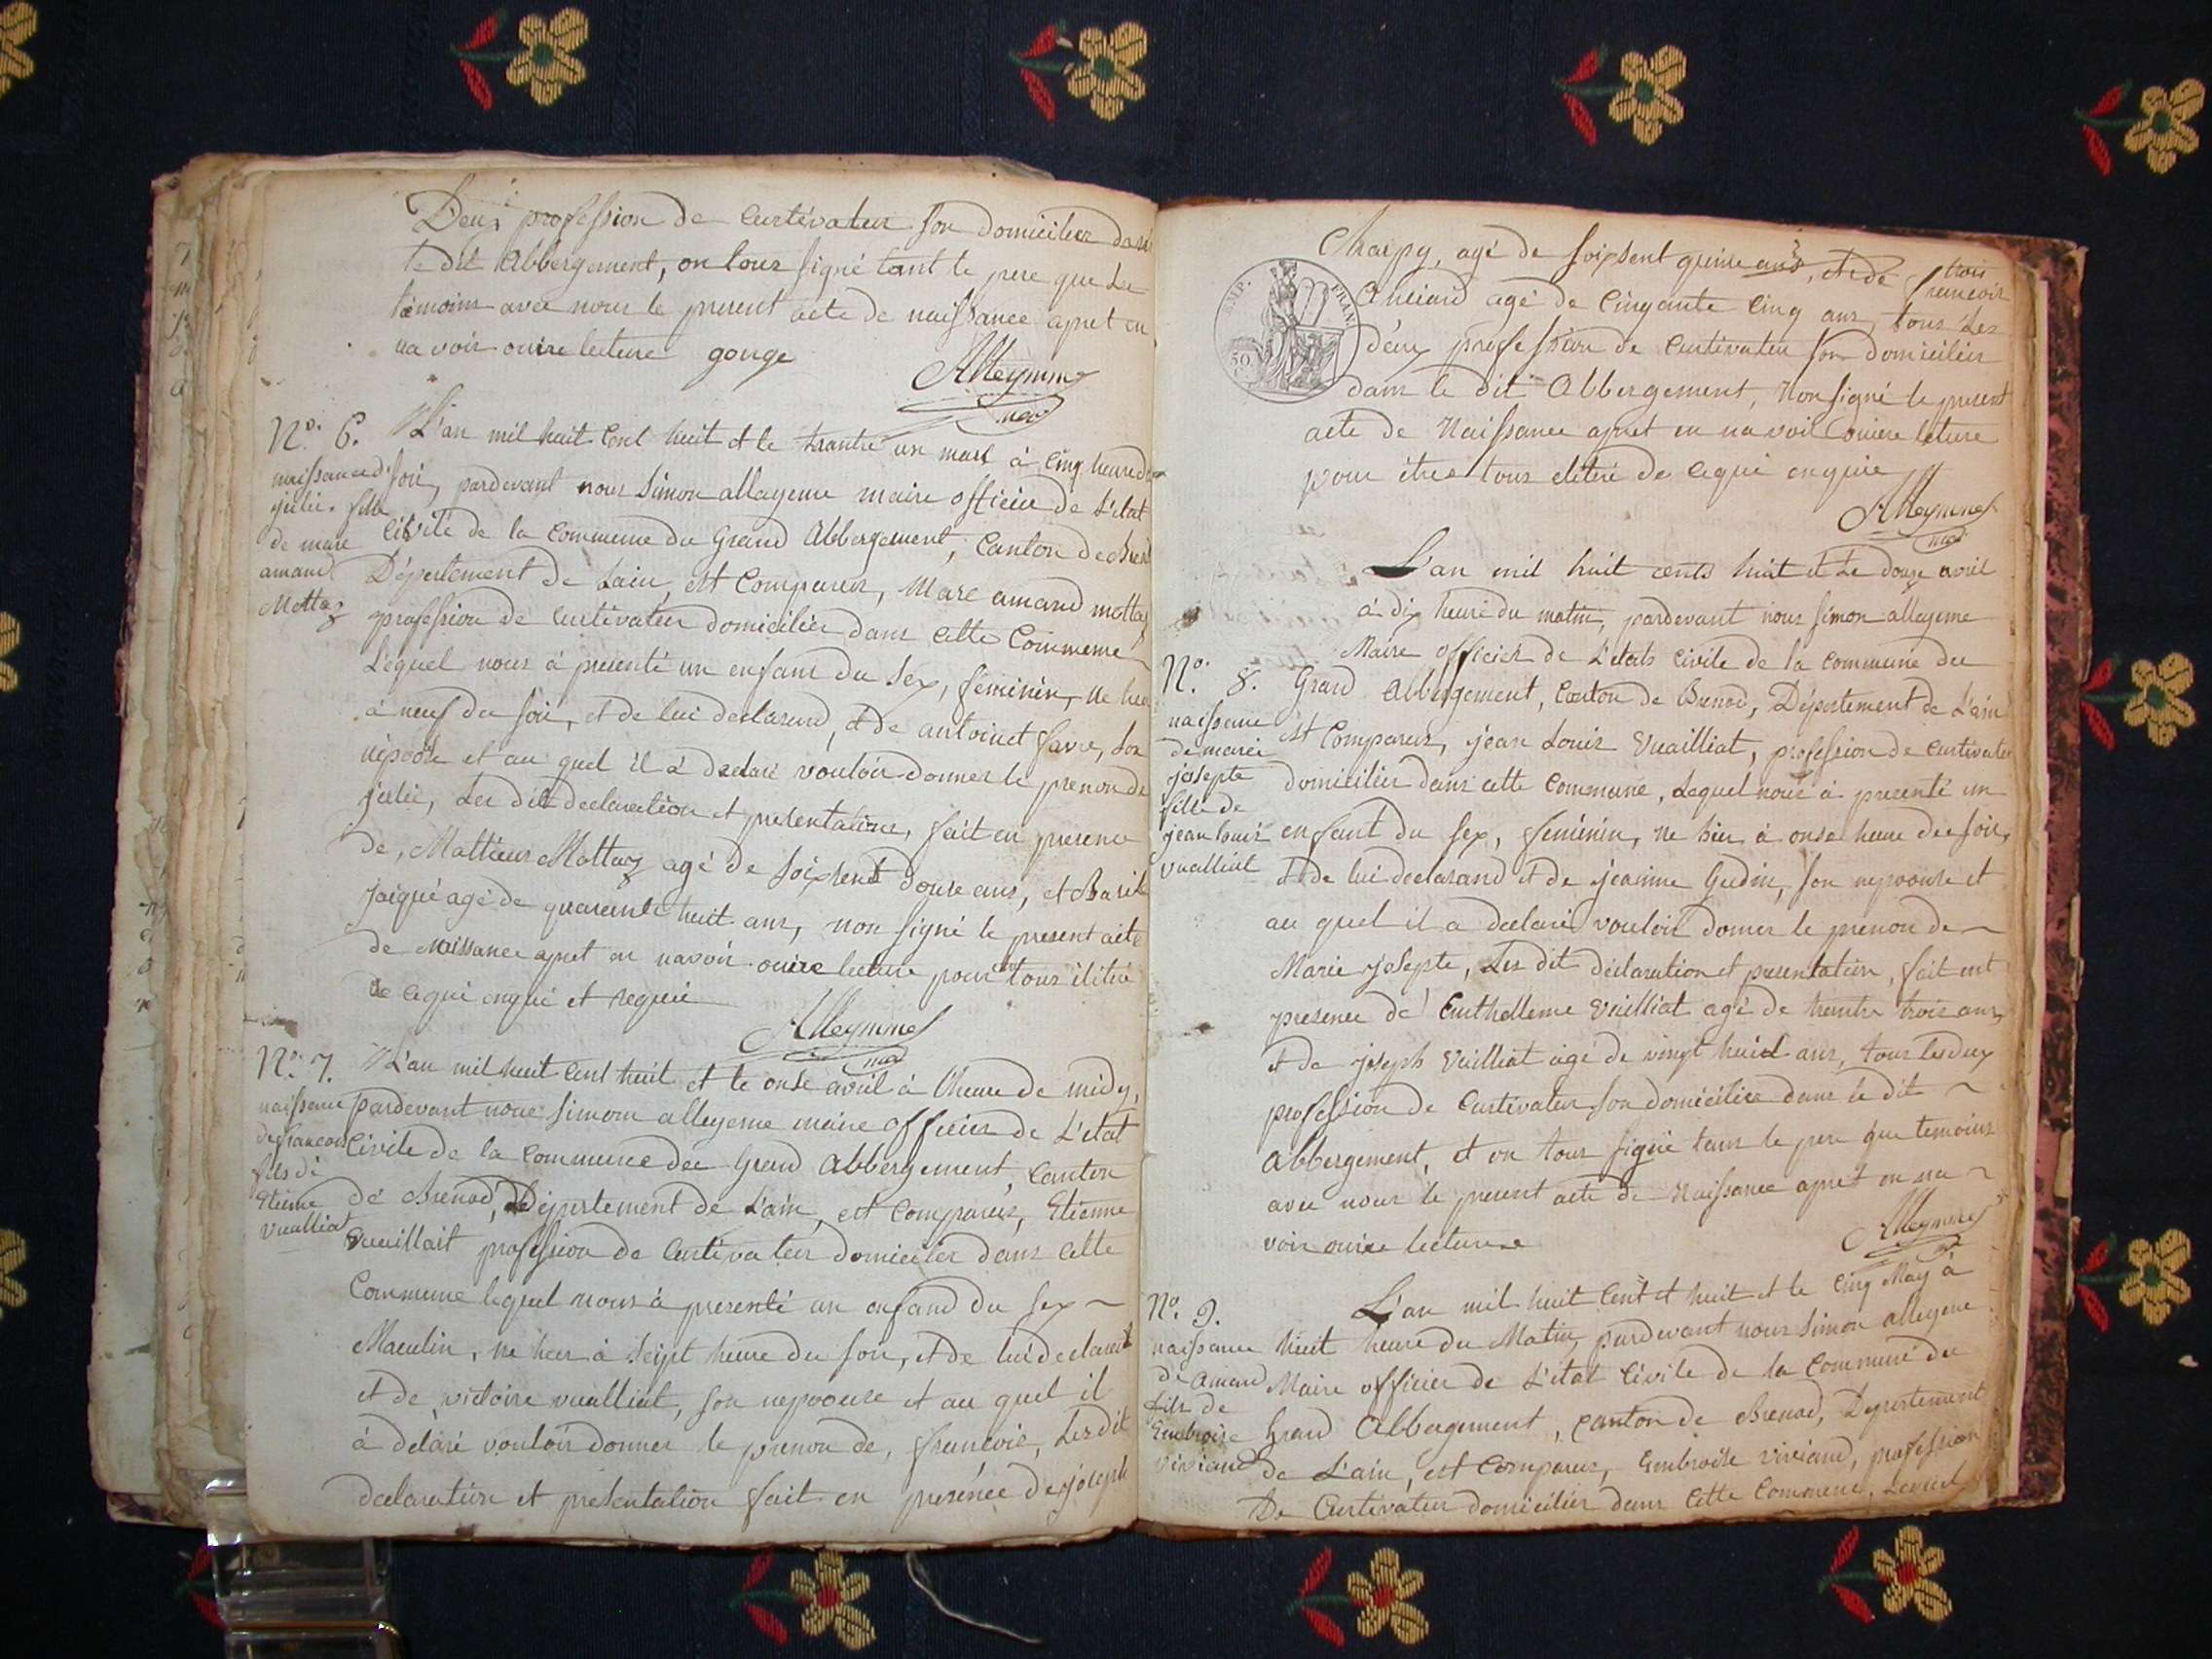 Deux profession de Curtivateur son domicilier dans
le dit Abbergement, on tous signé tant le pere que Les
témoins avec nous le present acte de naissance apret en
na voir ouire lecture gouge
Alleymme
N.º 6. L'an mil huit Cent huit et le trante un mars à Cinq heure du
naissance de
julie fille
de marc
amand
Mottaz
soir, pardevant nous Simon allayeme maire officier de L'etat
Civile de la Commune du Grand Abbergement, Canton de
Département de Lain, est Comparus, Marc amand mottaz
profession de Curtivateur domicilier dans Cette Commune
Lequel nous à presenté un enfant du Sex, féminin, ne hier
à neuf du soir, et de lui declarand, et de antoinet favre, son
népoose et au quel il à declaré vouloir donner le prenon de
julie, Les dit declaration et presentations, fait en presence
de, Mattieu Mottaz agé de Soixsent douse ans, et Basile
Jaiqué agé de quarante huit ans, non signé le present acte
de Naissance apret en navoir ouire lecture pour tous
de cequi enqui et requie
Alleymme
N.º 7. L'an mil huit Cent huit et le onse avril à l'heure de midy,
naissance
de francois
fils de
Etienne
Vualliat
pardevant nous simon allegeme maire officier de L'etat
Civile de la Commune du Grand Abbergement, Canton
dé Brenod, Département de L'ain, est Comparus, Etienne
vuaillait profession de Curtivateur domicilier dans Cette
Commune lequel nous à presenté un enfand du Sex ~
Maculin, ne hier à Seipt heure du soir, et de lui declarant
et de victoire vualliat, son nepoouse et au quel il
à delaré vouloir donner le prenon de, francois, Les dit
declaration et présentation fait en presénce de joseph
Charpy, agé de soixsent quinse ans, et de francois
Anciand agé de Cinqante Cinq ans, tous Les
déux profession de Curtivateur son domicilier
dans le dit Abbergement, Non signé le present
acte de Naissance apret en na voir ouire leture
pour être tous de cequi
Alleymme
EMP. FRAN.
50
L'an mil huit cents huit et Le douze avril
à dix heure du matin, pardevant nous simon allayeme
Maire officier de L'etats Civile de la Commune du
N.º 8. Grand Abbergement, Canton de Brenod, Département de L'ain
naissance
de marie
josepte
fille de
jean louis
vualliat
est Comparus, jean Louis Vuailliat, profession de Curtivateur
domicilier dans cette Commune, Lequel nous à presenté un
enfant du sex, feminin, ne hier à onse heure du soir,
et de lui declarand et de jeanne Gudin, son nepoouse et
au quel il a declaré vouloir donner le prenon de ~
Marie josepte, Les dit déclaration et presentation, fait ent
presence dé Vuilliat agé de trente trois ans,
et de joseph Vuilliat agé de vingt huid ans, tous les dux
profession de Curtivateur son domicilier dans le dit ~
Abbergement, et on tous signé tans le pere que temoins
avec nous le present acte de Naissance apret en na ~
voir ouire lecture
Alleymme
N.º 9. L'an mil huit Cent et huit et le Cinq May à
naissance
de Amand
fils de
Embroise
Viviand
huit heure du Matin, pardevant nous simon allegeme
Maire officier de L'etat Civile de la Commune du
Grand Abbergement, Canton de Brenod, Departement
de L'ain, est Comparus, Embroise Viviand, profession
De Curtivateur domicilier dans Cette Commune, Lequel